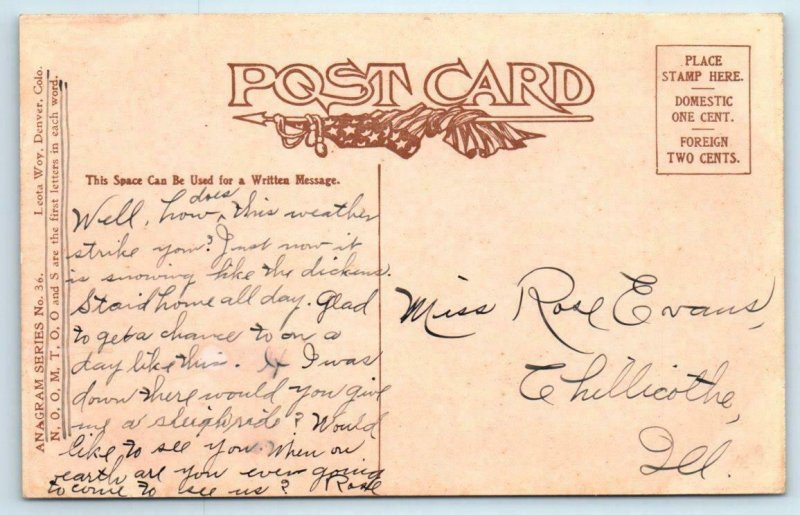 POST CARD
PLACE
STAMP HERE.
DOMESTIC
ONE CENT.
FOREIGN
TWO CENTS.
ANAGRAM SERIES No. 36. Leota Woy, Denver, Colo.
N, O, O, M, T, O, O and S are the first letters in each word.
This Space Can Be Used for a Written Message.
Well, how does this weather
strike you? Just now it
is snowing like the dickens.
Staid home all day. Glad
to get a chance to on a
day like this. If I was
down there would you give
me a sleighride? Would
like to see you. When on
earth are you ever going
to come to see us? Rose
Miss Rose Evans,
Chillicothe,
Ill.